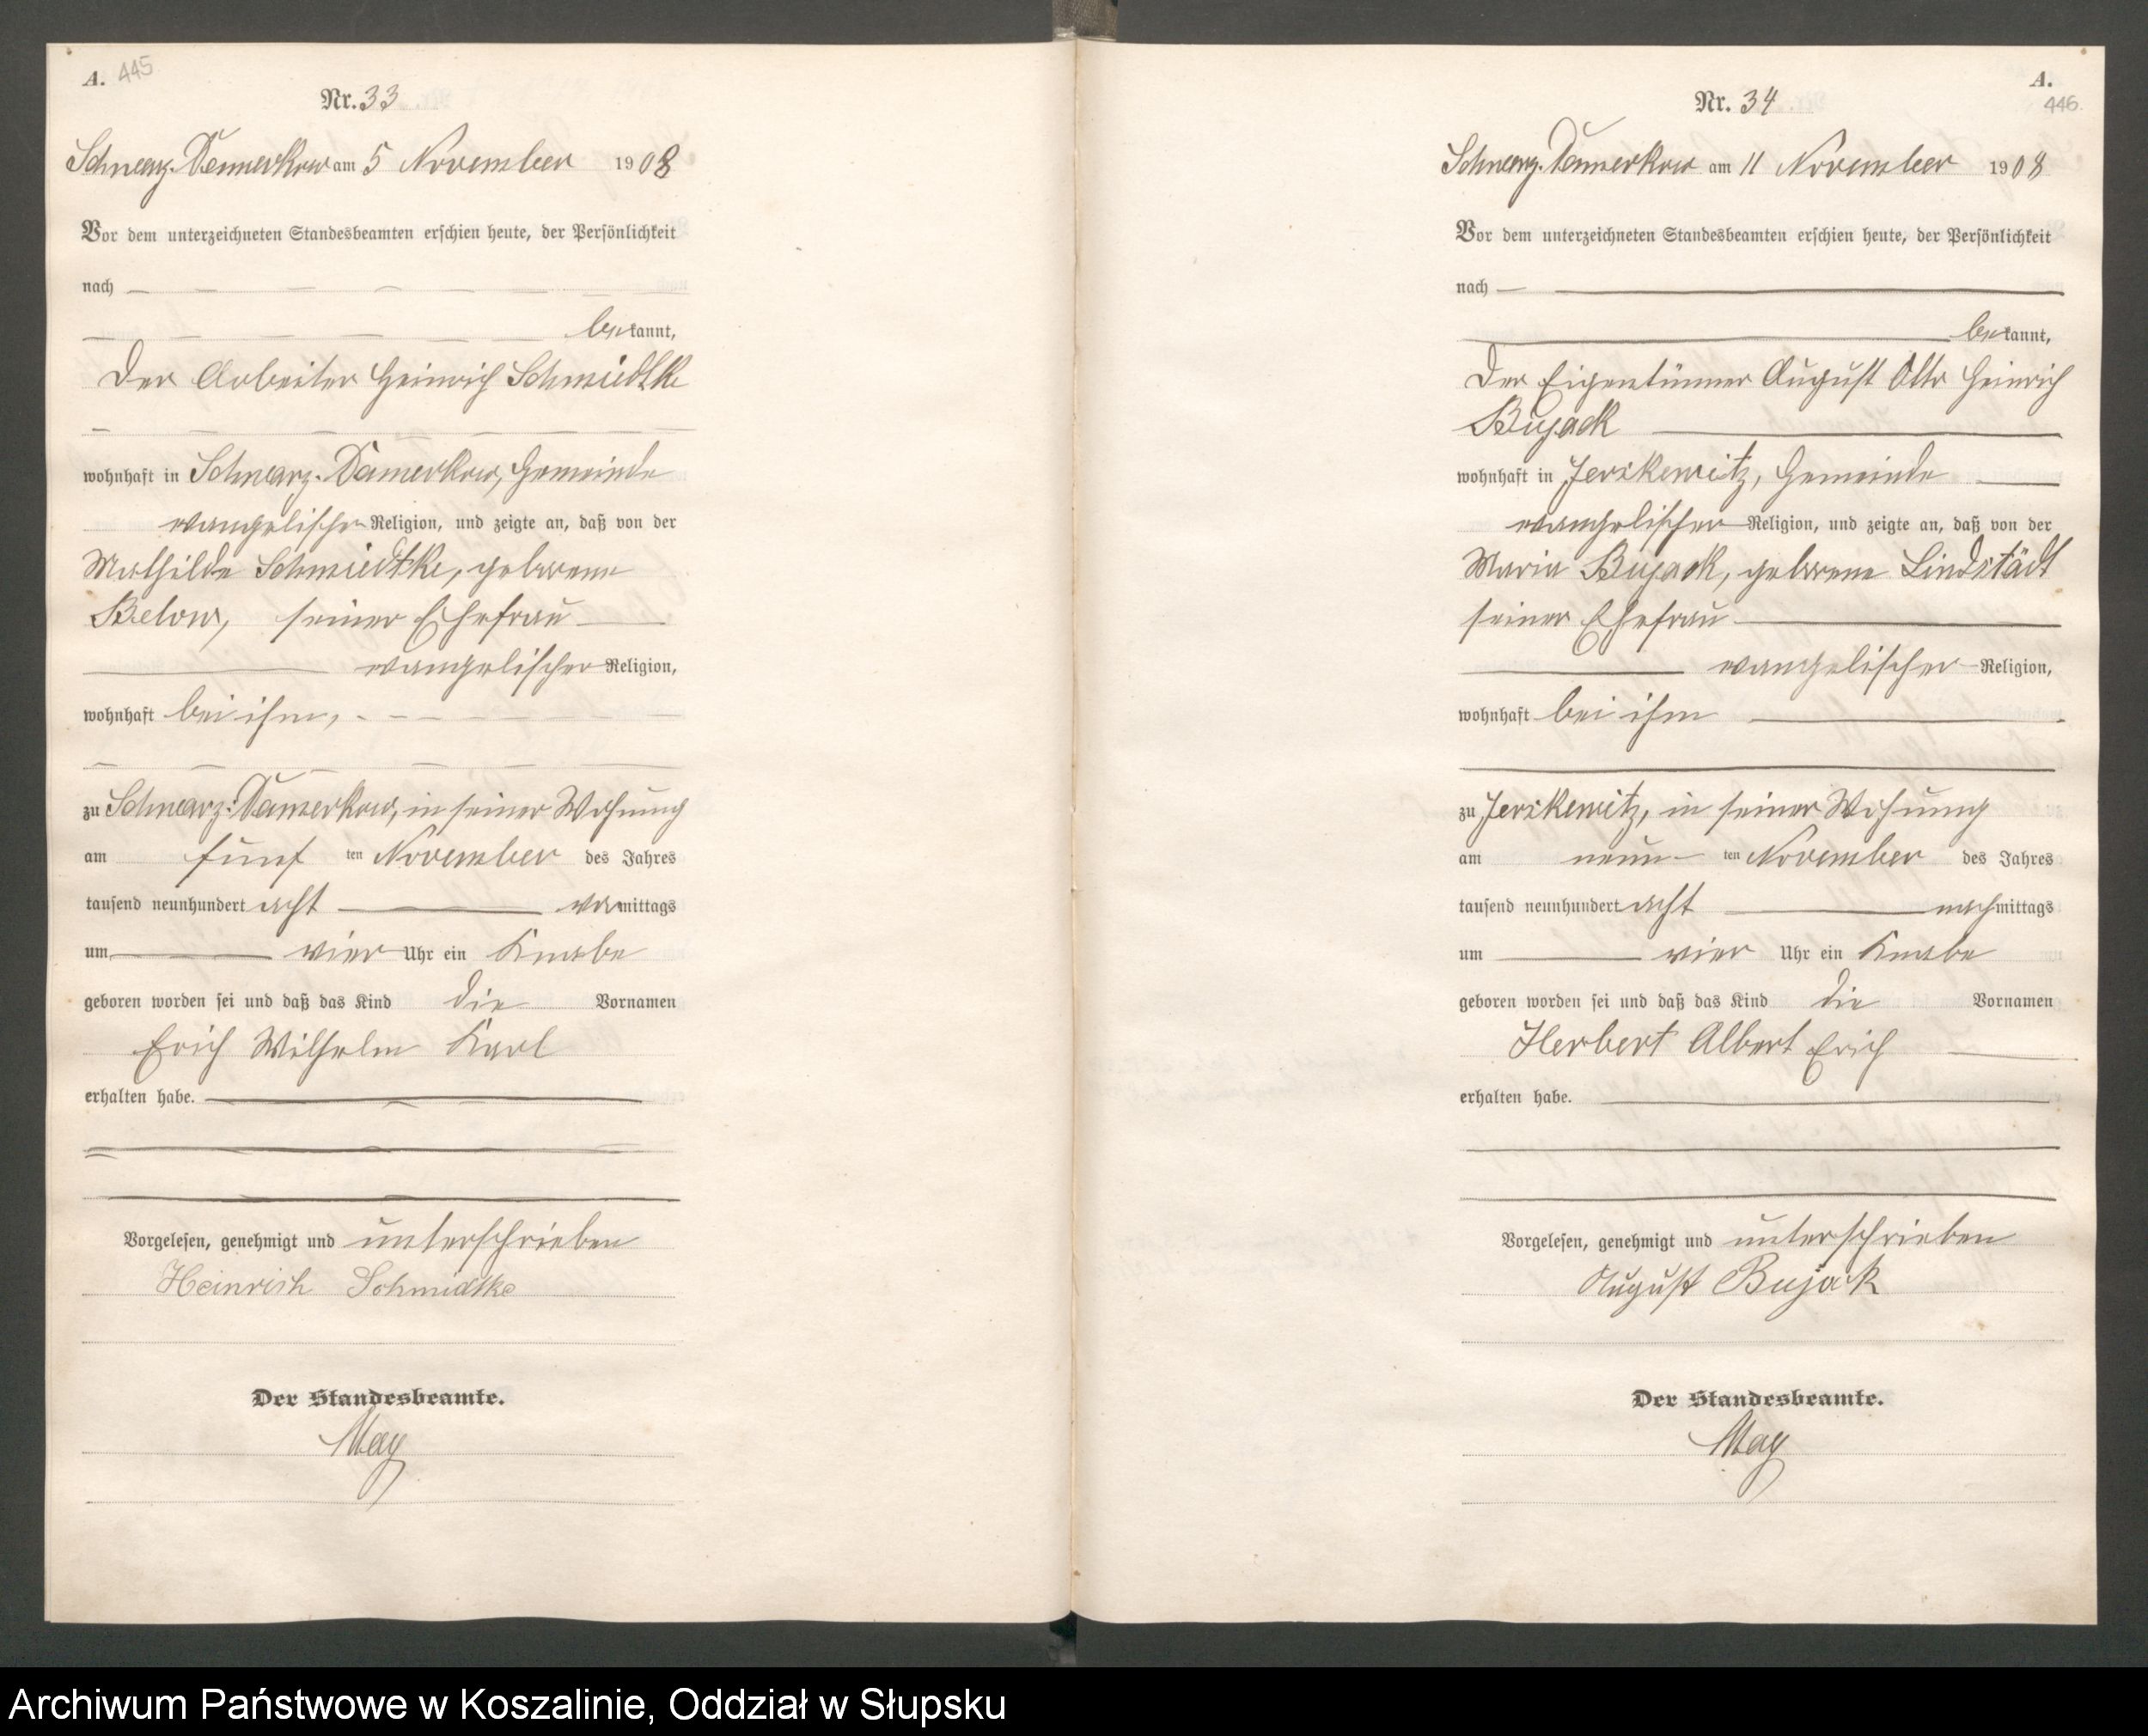 A. 445
Nr. 33
Schwarz-Damerkow am 5 November 1908
Vor dem unterzeichneten Standesbeamten erschien heute, der Persönlichkeit
nach
bekannt,
Der Arbeiter Heinrich Schmidtke
wohnhaft in Schwarz-Damerkow, Gemeinde
evangelischer Religion, und zeigte an, daß von der
Mathilde Schmidtke, geborene
Below, seiner Ehefrau
evangelischer Religion,
wohnhaft bei ihm,
zu Schwarz-Damerkow, in seiner Wohnung
am fünf ten November des Jahres
tausend neunhundert acht vormittags
um vier Uhr ein Knabe
geboren worden sei und daß das Kind die Vornamen
Erich Wilhelm Karl
erhalten habe.
Vorgelesen, genehmigt und unterschrieben
Heinrich Schmidtke
Der Standesbeamte.
May
A.
446
Nr. 34
Schwarz-Damerkow am 11 November 1908
Vor dem unterzeichneten Standesbeamten erschien heute, der Persönlichkeit
nach
bekannt,
Der Eigentümer August Otto Heinrich
Bujack
wohnhaft in Jerskewitz, Gemeinde
evangelischer Religion, und zeigte an, daß von der
Maria Bujack, geborene Lindstädt
seiner Ehefrau
evangelischer Religion,
wohnhaft bei ihm
zu Jerskewitz, in seiner Wohnung
am neun ten November des Jahres
tausend neunhundert acht nachmittags
um vier Uhr ein Knabe
geboren worden sei und daß das Kind die Vornamen
Herbert Albert Erich
erhalten habe.
Vorgelesen, genehmigt und unterschrieben
August Bujack
Der Standesbeamte.
May
Archiwum Państwowe w Koszalinie, Oddział w Słupsku